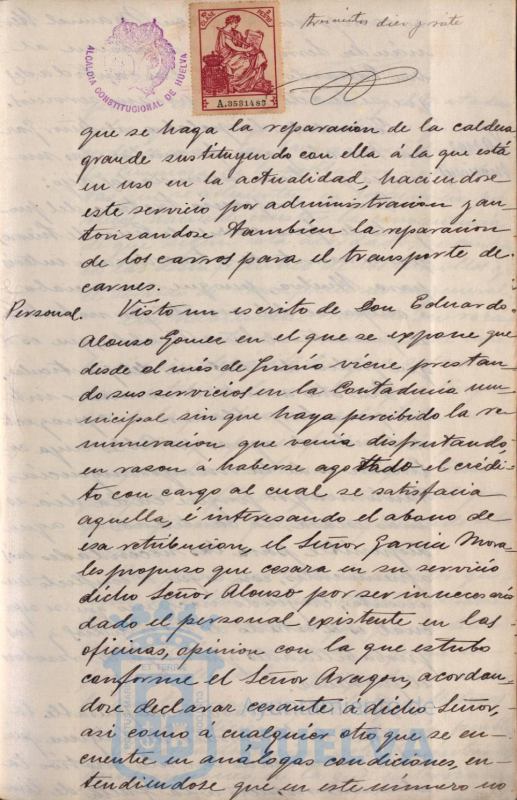 trescientos diez y siete
ALCALDIA CONSTITUCIONAL DE HUELVA
A.3531483
que se haga la reparacion de la caldera
grande sustituyendo con ella á la que está
en uso en la actualidad, haciendose
este servicio por administracion y au-
torisandose tambien la reparacion
de los carros para el transporte de
carnes.
Personal. Visto un escrito de Don Eduardo
Alonso Gomez en el que se expone que
desde el més de Junio viene prestan-
do sus servicios en la Contaduria mu-
nicipal sin que haya percibido la re-
muneracion que venia disfrutando,
en rason á haberse agotado el crédi-
to con cargo al cual se satisfacia
aquella, é interesando el abono de
esa retribucion, el Señor Garcia Mora-
les propuso que cesara en su servicio
dicho Señor Alonso por ser innecesario
dado el personal existente en las
oficinas, opinion con la que estubo
conforme el Señor Aragon, acordan-
dose declarar cesante á dicho Señor,
así como á cualquier otro que se en-
cuentre en análogas condiciones, en-
tendiendose que en este número no
HUELVA